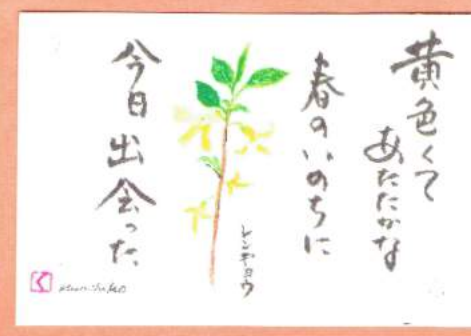 黄色くて
あたたかな
春のいのちに
レンギョウ
今日出会った。
く